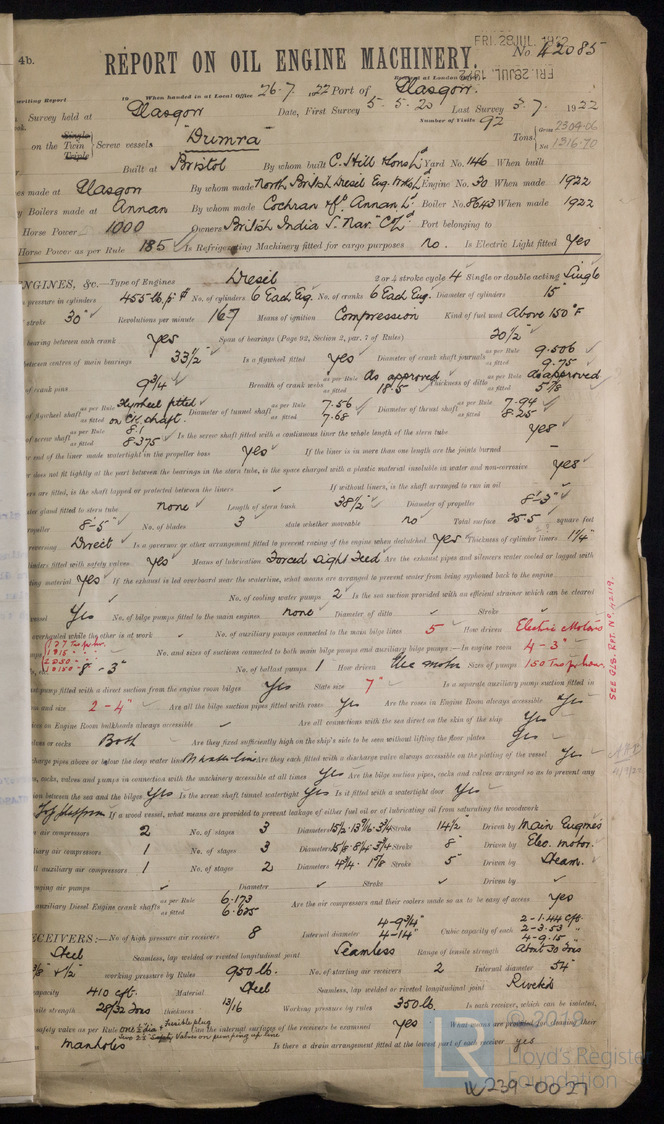 4b.
REPORT ON OIL ENGINE MACHINERY.
FRI. 28 JUL. 1922
No. 42085
Received at London Office
FRI. 28 JUL. 1922
writing Report 19 When handed in at Local Office 26.7.1922 Port of Glasgow.
Survey held at Glasgow Date, First Survey 5.5.20 Last Survey 3.7.1922
Number of Visits 92
on the Single Twin Triple Screw vessels "Dumra" Tons Gross 2304.06 Net 1316.70
Built at Bristol By whom built C. Hill & Sons Ld Yard No. 146 When built
es made at Glasgow By whom made North British Diesel Eng. Wks Ld Engine No. 30 When made 1922
y Boilers made at Annan By whom made Cochran & Co. Annan Ld Boiler No. 8643 When made 1922
Horse Power 1000 Owners British India S. Nav. Co Ld Port belonging to
Horse Power as per Rule 185 Is Refrigerating Machinery fitted for cargo purposes no. Is Electric Light fitted yes
ENGINES, &c.—Type of Engines Diesel 2 or 4 stroke cycle 4 Single or double acting Single
pressure in cylinders 455 lb. p. No. of cylinders 6 Each Eng. No. of cranks 6 Each Eng. Diameter of cylinders 15"
stroke 30" Revolutions per minute 167 Means of ignition Compression Kind of fuel used Above 150°F
bearing between each crank yes Span of bearings (Page 92, Section 2, par. 7 of Rules) 20 1/2"
between centres of main bearings 33 1/2" Is a flywheel fitted yes Diameter of crank shaft journals as per Rule 9.506 as fitted 9.75
of crank pins 9 3/4 Breadth of crank webs as per Rule As approved as fitted 18.5 Thickness of ditto as per Rule As approved as fitted 5 7/8
of flywheel shaft as per Rule Flywheel fitted as fitted on C.H. shaft. Diameter of tunnel shaft as per Rule 7.56 as fitted 7.68 Diameter of thrust shaft as per Rule 7.94 as fitted 8.25
of screw shaft as per Rule 8.1 as fitted 8.375 Is the screw shaft fitted with a continuous liner the whole length of the stern tube yes
end of the liner made watertight in the propeller boss yes If the liner is in more than one length are the joints burned –
r does not fit tightly at the part between the bearings in the stern tube, is the space charged with a plastic material insoluble in water and non-corrosive yes
ers are fitted, is the shaft lapped or protected between the liners If without liners, is the shaft arranged to run in oil
ter gland fitted to stern tube none Length of stern bush 38 1/2" Diameter of propeller 8'-3"
ropeller 8'-5" No. of blades 3 state whether moveable no Total surface 25.5 square feet
reversing Direct Is a governor or other arrangement fitted to prevent racing of the engine when declutched yes Thickness of cylinder liners 1 1/4"
linders fitted with safety valves yes Means of lubrication Forced Sight Feed Are the exhaust pipes and silencers water cooled or lagged with
ting material yes If the exhaust is led overboard near the waterline, what means are arranged to prevent water from being syphoned back to the engine
No. of cooling water pumps 2 Is the sea suction provided with an efficient strainer which can be cleared
vessel Yes No. of bilge pumps fitted to the main engines none Diameter of ditto Stroke
overhauled while the other is at work No. of auxiliary pumps connected to the main bilge lines 5 How driven Electric Motors
No. and sizes of suctions connected to both main bilge pumps and auxiliary bilge pumps:—In engine room 4 - 3"
8 - 3" No. of ballast pumps 1 How driven Elec motor Sizes of pumps 150 Tns per hour
st pump fitted with a direct suction from the engine room bilges Yes State size 7" Is a separate auxiliary pump suction fitted in
and size 2 - 4" Are all the bilge suction pipes fitted with roses Yes Are the roses in Engine Room always accessible Yes
es on Engine Room bulkheads always accessible Are all connections with the sea direct on the skin of the ship Yes
alves or cocks Both Are they fixed sufficiently high on the ship's side to be seen without lifting the floor plates Yes
charge pipes above or below the deep water line Are they each fitted with a discharge valve always accessible on the plating of the vessel Yes
s, cocks, valves and pumps in connection with the machinery accessible at all times Yes Are the bilge suction pipes, cocks and valves arranged so as to prevent any
on between the sea and the bilges Yes Is the screw shaft tunnel watertight Yes Is it fitted with a watertight door Yes
Top platform If a wood vessel, what means are provided to prevent leakage of either fuel oil or of lubricating oil from saturating the woodwork
n air compressors 2 No. of stages 3 Diameters 15 1/2. 13 7/16. 3 3/4 Stroke 14 1/2 Driven by Main Engines
iliary air compressors 1 No. of stages 3 Diameters 15 1/8. 8 1/4. 3 3/4 Stroke 8" Driven by Elec. motor.
ll auxiliary air compressors 1 No. of stages 2 Diameters 4 3/4. 1 7/8 Stroke 5" Driven by Steam.
nging air pumps Diameter Stroke Driven by
auxiliary Diesel Engine crank shafts as per Rule 6.173 as fitted 6.625 Are the air compressors and their coolers made so as to be easy of access Yes
RECEIVERS:—No. of high pressure air receivers 8 Internal diameter 4-9 3/4" 4-14" Cubic capacity of each 2-1.44 cft. 2-3.53 " 4-9.15 "
Steel Seamless, lap welded or riveted longitudinal joint Seamless Range of tensile strength About 30 Tons
& 1/2" working pressure by Rules 950 lb. No. of starting air receivers 2 Internal diameter 54"
capacity 410 cft. Material Steel Seamless, lap welded or riveted longitudinal joint Riveted
sile strength 28/32 Tons thickness 13/16 Working pressure by rules 350 lb. Is each receiver, which can be isolated,
safety valve as per Rule one 5 dia & fusible plug Two 2 1/2 safety valves on pumping up line Can the internal surfaces of the receivers be examined Yes What means are provided for cleaning their
manholes Is there a drain arrangement fitted at the lowest part of each receiver yes
SEE GLS. RPT. No. 42119.
© 2019
LR Lloyd's Register Foundation
W239-0027